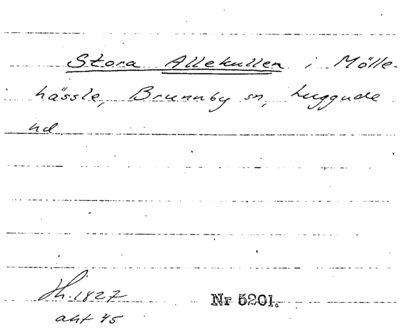 Stora Allekullen i Mölle-
hässle, Brunnby sn, Luggude
hd
Lh. 1827
akt 45
Nr 5201.